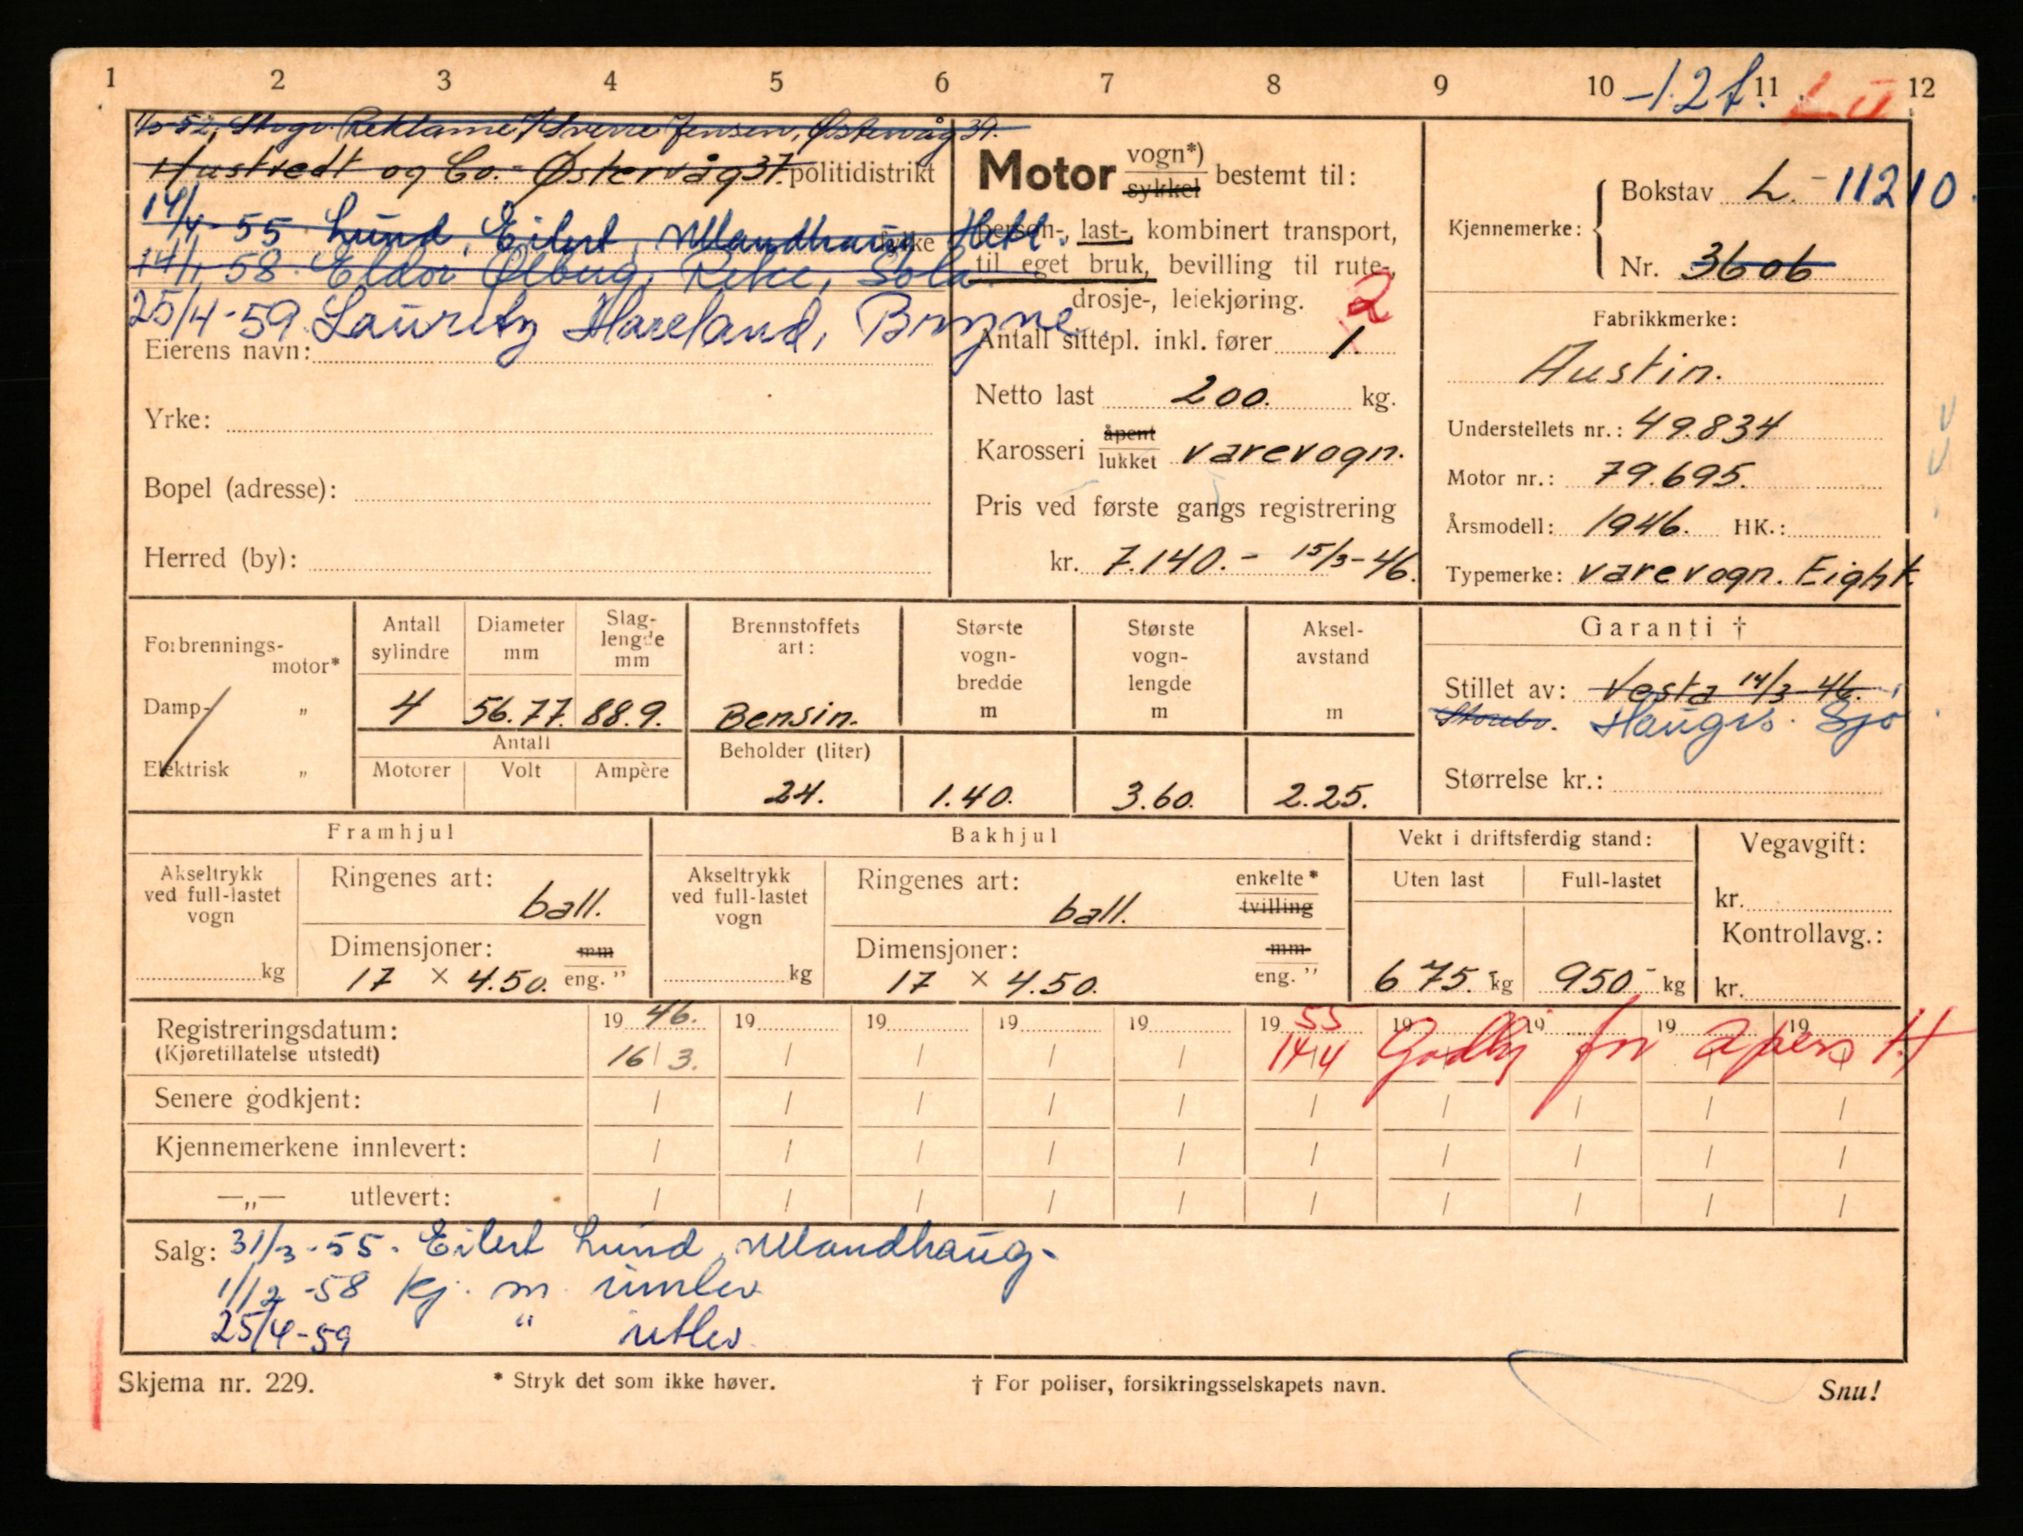 1 2 3 4 5 6 7 8 9 10 -12f. 11 12
1/3-52. Stvgr. Reklame v/Sverre Jensen, Østervåg 39.
Hustvedt og Co. - Østervåg 37. politidistrikt
14/4-55 Lund, Eilert, Mandhaug Hetl.
14/1 58. Eldor Ølberg, Reke, Sola
25/4-59. Lauritz Hareland, Bryne
Eierens navn:
Yrke:
Bopel (adresse):
Herred (by):
Motor vogn*) sykkel bestemt til:
person-, last-, kombinert transport,
til eget bruk, bevilling til rute-,
drosje-, leiekjøring. 2
Antall sittepl. inkl. fører 1.
Netto last 200. kg.
Karosseri åpent lukket varevogn.
Pris ved første gangs registrering
kr. 7.140.- 15/3-46.
Kjennemerke: Bokstav L. - 11210.
Nr. 3606
Fabrikkmerke:
Austin.
Understellets nr.: 49.834
Motor nr.: 79.695.
Årsmodell: 1946. HK.:
Typemerke: varevogn. Eight.
Forbrennings-motor*
Damp- „
Elektrisk „
Antall sylindre 4
Diameter mm 56.77.
Slag-lengde mm 88.9.
Antall
Motorer Volt Ampère
Brennstoffets art:
Bensin.
Beholder (liter)
24.
Største vogn-bredde m 1.40.
Største vogn-lengde m 3.60.
Aksel-avstand m 2.25.
Garanti †
Stillet av: Vesta 14/3-46.
Storebr. Hauges. Sjø
Størrelse kr.:
Framhjul
Akseltrykk ved full-lastet vogn
kg
Ringenes art:
ball.
Dimensjoner: mm
17 × 4.50. eng. "
Bakhjul
Akseltrykk ved full-lastet vogn
kg
Ringenes art: enkelte* tvilling
ball.
Dimensjoner: mm
17 × 4.50. eng. "
Vekt i driftsferdig stand:
Uten last Full-lastet
675. kg 950 kg
Vegavgift:
kr.
Kontrollavg.:
kr.
Registreringsdatum: 19 46. 19 19 19 19 19 55 19 19 19 19
(Kjøretillatelse utstedt) 16/3. / / / / 14/4 Godkj for 2 pers
Senere godkjent: / / / / / / / / / /
Kjennemerkene innlevert: / / / / / / / / / /
—„— utlevert: / / / / / / / / / /
Salg: 31/3-55. Eilert Lund, Mandhaug-
1/12-58 kj. m. innlev.
25/4-59 " utlev.
Skjema nr. 229. * Stryk det som ikke høver. † For poliser, forsikringsselskapets navn. Snu!